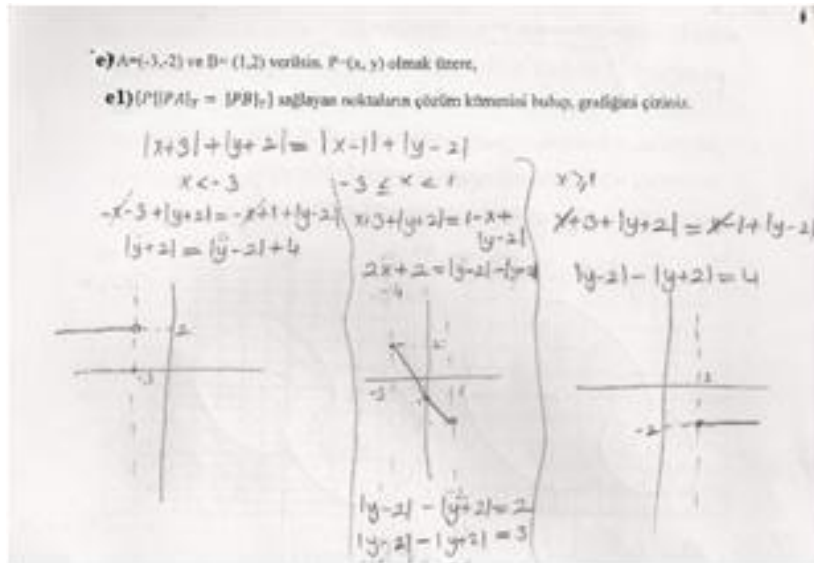 e) A=(-3,-2) ve B= (1,2) verilsin. P=(x, y) olmak üzere,
e1) {P||PA|_T = |PB|_T} sağlayan noktaların çözüm kümesini bulup, grafiğini çiziniz.
|x+3|+|y+2|= |x-1|+|y-2|
x<-3
-x-3+|y+2|=-x+1+|y-2|
|y+2| = |y-2|+4
2
-3
-3 ≤ x < 1
x+3+|y+2|=1-x+
|y-2|
2x+2=|y-2|-|y+2|
-4
2
-3
1
|y-2| - |y+2|=2
|y-2|-|y+2| = 3
x≥1
x+3+|y+2| = x-1+|y-2|
|y-2| - |y+2| = 4
1
-2